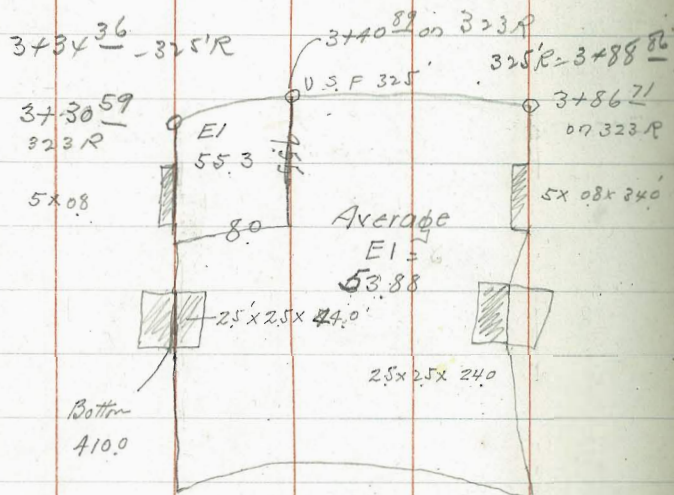 3+34 36 - 325'R
3+40 89 on 323 R
325'R = 3+88 86
U.S.F 325'
3+30 59
323 R
3+86 71
on 323 R
E1
55.3
5 x 08
5 x 08 x 340'
80
Average
E1 =
53.88
2.5' x 2.5 x 24.0'
25 x 25 x 240
Bottom
410.0